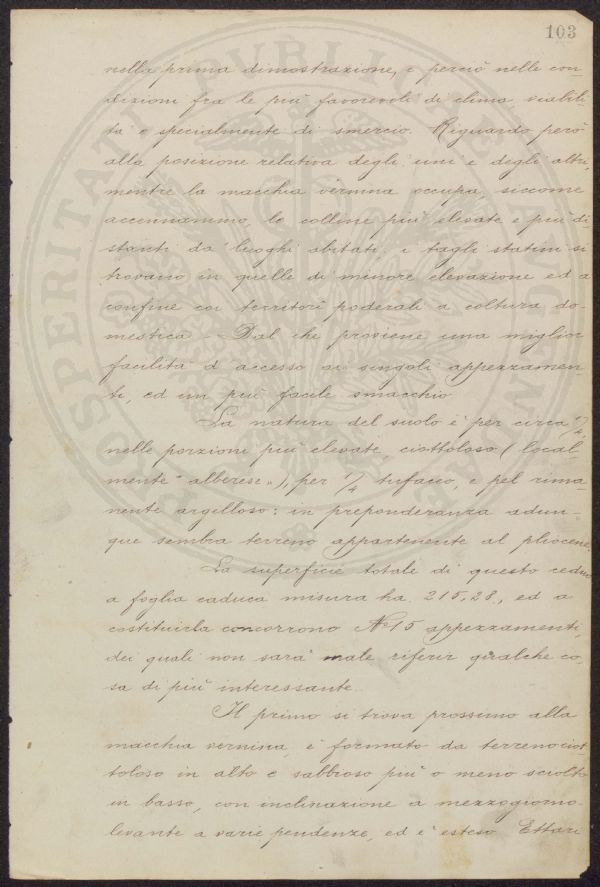 103
nella prima dimostrazione, e perciò nelle con-
dizioni fra le più favorevoli di clima, viabili-
tà e specialmente di smercio. Riguardo però
alla posizione relativa degli uni e degli altri,
mentre la macchia vernina occupa, siccome
accennammo, le colline più elevate e più di-
stanti da' luoghi abitati, i tagli statini si
trovano in quelle di minore elevazione ed a
confine coi territorî poderali a coltura do-
mestica. Dal che proviene una miglior
facilità d'accesso ai singoli appezzamen-
ti, ed un più facile smacchio.
La natura del suolo è per circa 1/4,
nelle porzioni più elevate, ciottoloso (local-
mente "alberese"), per 1/4 tufaceo, e pel rima-
nente argilloso: in preponderanza adun-
que sembra terreno appartenente al pliocene.
La superficie totale di questo ceduo
a foglia caduca misura ha. 215,28., ed a
costituirla concorrono No 15 appezzamenti,
dei quali non sarà male riferir qualche co-
sa di più interessante.
Il primo si trova prossimo alla
macchia vernina, è formato da terreno ciot-
toloso in alto e sabbioso più o meno sciolto
in basso, con inclinazione a mezzogiorno-
levante a varie pendenze, ed è esteso Ettari
PROSPERITATI PVBLICAE AVGENDAE